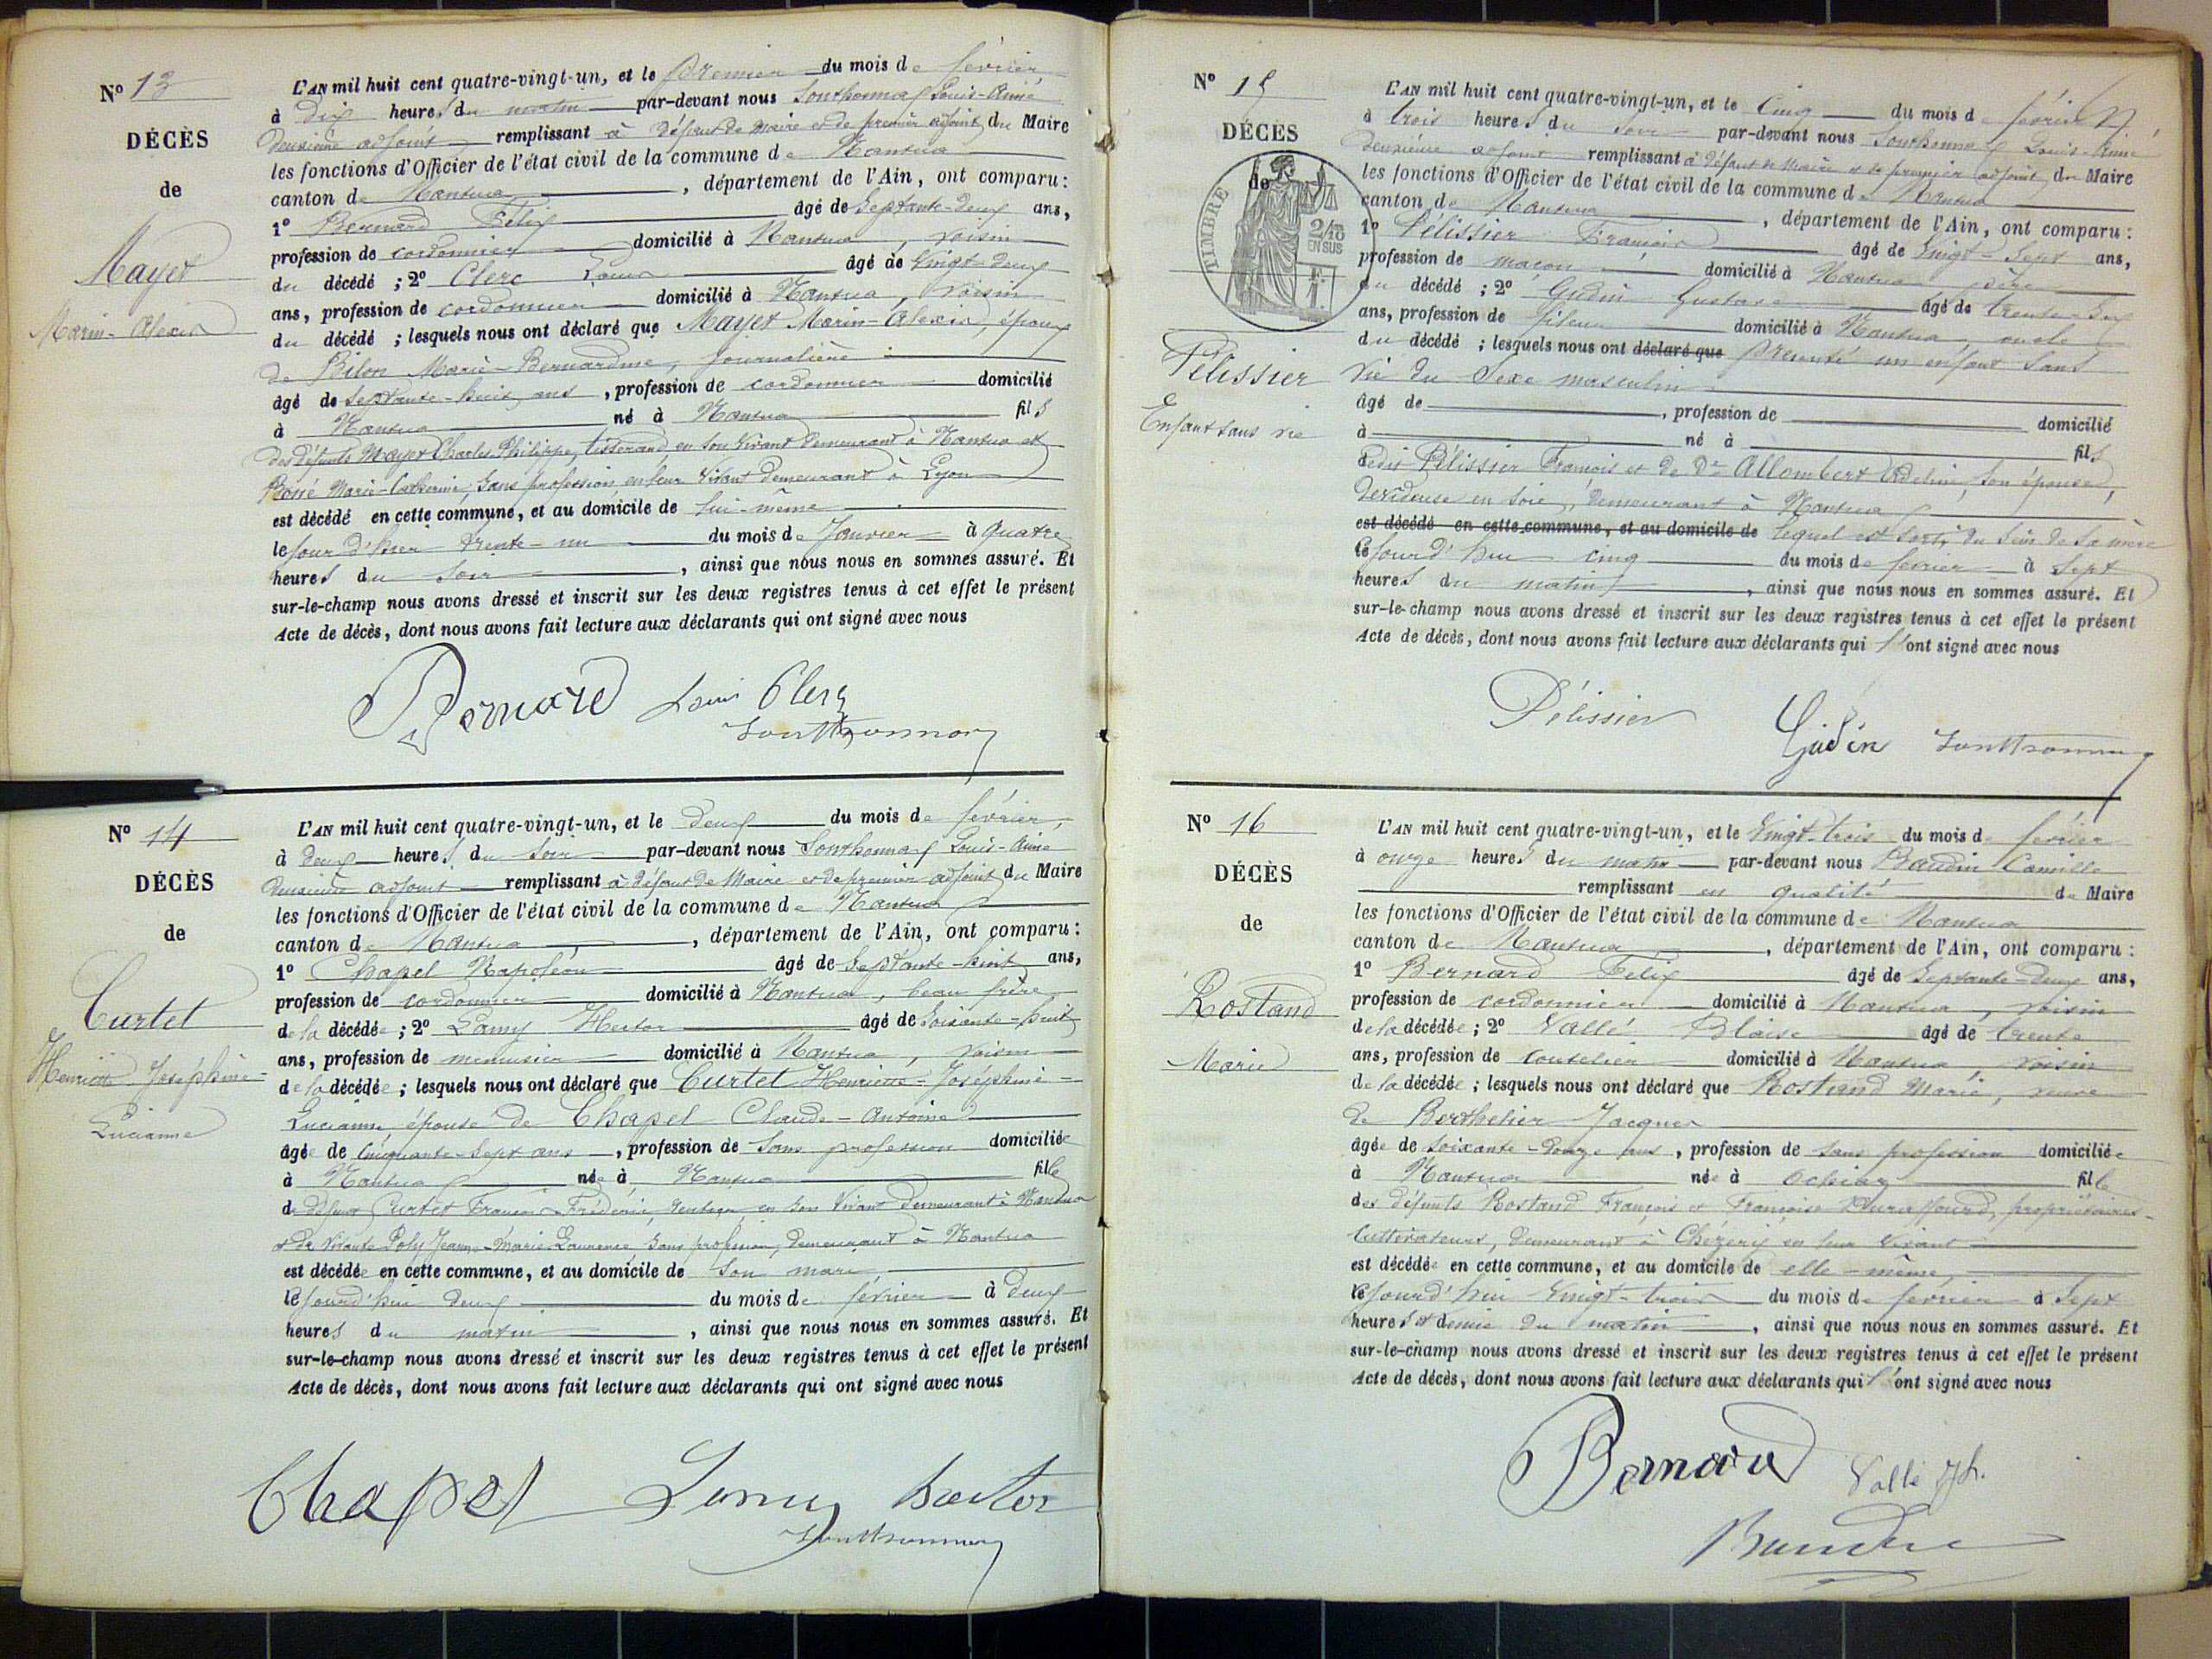 N° 13
DÉCÈS
de
Mayet
Marin-Alexis
L'AN mil huit cent quatre-vingt-un, et le premier du mois de février
à Dix heures du matin par-devant nous Sonthonnax Louis-Aimé
deuxième adjoint remplissant à défaut de Maire et de premier adjoint du Maire
les fonctions d'Officier de l'état civil de la commune de Nantua
canton de Nantua, département de l'Ain, ont comparu:
1° Bernard Félix âgé de Septante-deux ans,
profession de cordonnier domicilié à Nantua, voisin
du décédé; 2° Clerc Louis âgé de Vingt-deux
ans, profession de cordonnier domicilié à Nantua, voisin
du décédé; lesquels nous ont déclaré que Mayet Marin-Alexis, époux
de Bilon Marie-Bernardine, journalière
âgé de Septante-huit ans, profession de cordonnier domicilié
à Nantua né à Nantua fils
des défunts Mayet Charles Philippe, tisserand, en son vivant demeurant à Nantua et
Marie-Catherine, sans profession en leur vivant demeurant à Lyon
est décédé en cette commune, et au domicile de lui-même
le jour d'hier trente-un du mois de Janvier à quatre
heures du soir, ainsi que nous nous en sommes assuré. Et
sur-le-champ nous avons dressé et inscrit sur les deux registres tenus à cet effet le présent
Acte de décès, dont nous avons fait lecture aux déclarants qui ont signé avec nous
Bernard Louis Clerc
Sonthonnax
N° 14
DÉCÈS
de
Curtet
Henriette Joséphine-
Lucianne
L'AN mil huit cent quatre-vingt-un, et le deux du mois de février,
à deux heures du soir par-devant nous Sonthonnax Louis-Aimé
deuxième adjoint remplissant à défaut de Maire et de premier adjoint du Maire
les fonctions d'Officier de l'état civil de la commune de Nantua
canton de Nantua, département de l'Ain, ont comparu:
1° Chapel Napoléon âgé de Septante-huit ans,
profession de cordonnier domicilié à Nantua, beau frère
de la décédée; 2° Lamy Hector âgé de Soixante-huit
ans, profession de menuisier domicilié à Nantua, voisin
de la décédée; lesquels nous ont déclaré que Curtet Henriette-Joséphine-
Lucianne épouse de Chapel Claude-Antoine
âgée de Cinquante-Sept ans, profession de Sans profession domiciliée
à Nantua née à Nantua fille
de défunt Curtet François-Frédéric, en son vivant demeurant à Nantua
et de vivante Poly Jeanne-Marie-Laurence, sans profession, demeurant à Nantua
est décédée en cette commune, et au domicile de son mari
le jourd'hui deux du mois de février à deux
heures du matin, ainsi que nous nous en sommes assuré. Et
sur-le-champ nous avons dressé et inscrit sur les deux registres tenus à cet effet le présent
Acte de décès, dont nous avons fait lecture aux déclarants qui ont signé avec nous
Chapel Lamy hector
Sonthonnax
N° 15
DÉCÈS
de
TIMBRE
2/10
EN SUS
Pélissier
Enfant sans vie
L'AN mil huit cent quatre-vingt-un, et le Cinq du mois de février
à trois heures du soir par-devant nous Sonthonnax Louis-Aimé
deuxième adjoint remplissant à défaut de Maire et de premier adjoint du Maire
les fonctions d'Officier de l'état civil de la commune de Nantua
canton de Nantua, département de l'Ain, ont comparu:
1° Pélissier François âgé de Vingt-Sept ans,
profession de maçon domicilié à Nantua père
du décédé; 2° Gudin Gustave âgé de trente-six
ans, profession de fileur domicilié à Nantua, oncle
du décédé; lesquels nous ont déclaré que présenté un enfant sans
vie du Sexe masculin
âgé de, profession de domicilié
à né à fils
dudit Pélissier François et de De Allombert Adeline, son épouse,
dévideuse en soie, demeurant à Nantua
est décédé en cette commune, et au domicile de lequel est sorti du sein de sa mère
le jourd'hui cinq du mois de février à sept
heures du matin, ainsi que nous nous en sommes assuré. Et
sur-le-champ nous avons dressé et inscrit sur les deux registres tenus à cet effet le présent
Acte de décès, dont nous avons fait lecture aux déclarants qui l'ont signé avec nous
Pélissier Gudin Sonthonnax
N° 16
DÉCÈS
de
Rostand
Marie
L'AN mil huit cent quatre-vingt-un, et le Vingt-trois du mois de février
à onze heures du matin par-devant nous Baudin Camille
remplissant en qualité de Maire
les fonctions d'Officier de l'état civil de la commune de Nantua
canton de Nantua, département de l'Ain, ont comparu:
1° Bernard Félix âgé de Septante-deux ans,
profession de cordonnier domicilié à Nantua, voisin
de la décédée; 2° Vallé Blaise âgé de trente
ans, profession de coutelier domicilié à Nantua, voisin
de la décédée; lesquels nous ont déclaré que Rostand Marie, veuve
de Berthelier Jacques
âgée de soixante-douze ans, profession de sans profession domiciliée
à Nantua née à Ochiaz fille
des défunts Rostand François et Françoise Duraffourd, propriétaires-
cultivateurs, demeurant à Chézery en leur vivant
est décédée en cette commune, et au domicile de elle-même,
le jourd'hui Vingt-trois du mois de février à sept
heures et demie du matin, ainsi que nous nous en sommes assuré. Et
sur-le-champ nous avons dressé et inscrit sur les deux registres tenus à cet effet le présent
Acte de décès, dont nous avons fait lecture aux déclarants qui l'ont signé avec nous
Bernard Vallé
Baudin